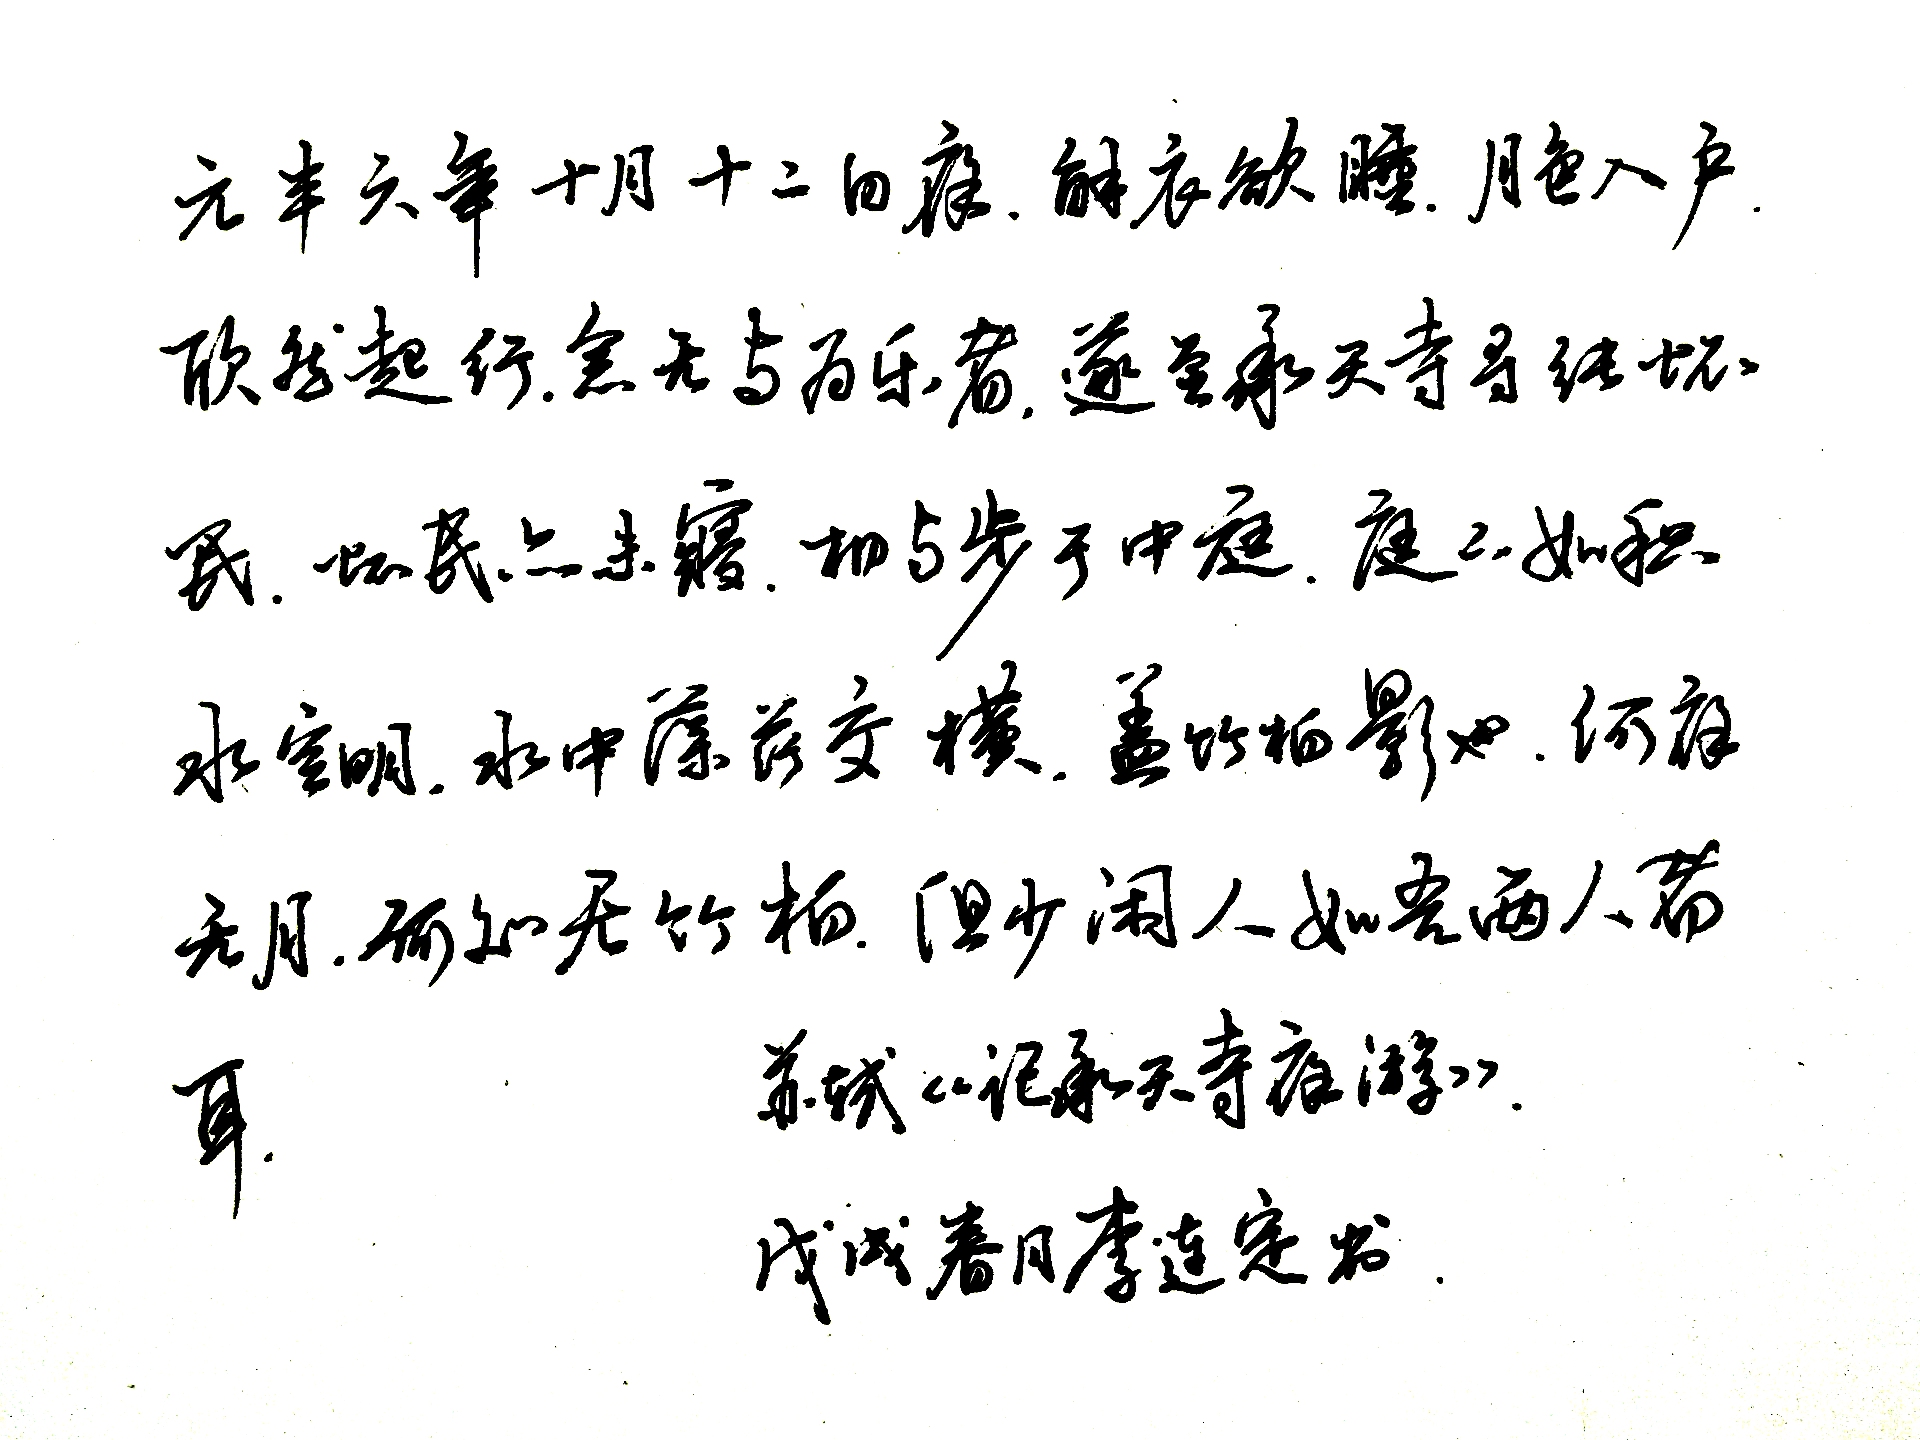 元丰六年十月十二日夜.解衣欲睡.月色入户.
欣然起行.念无与为乐者.遂至承天寺寻张怀
民.怀民亦未寝.相与步于中庭.庭下如积
水空明.水中藻荇交横.盖竹柏影也.何夜
无月.何处无竹柏.但少闲人如吾两人者
耳.
苏轼《记承天寺夜游》.
戊戌春月李连定书.